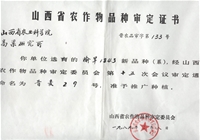 山西省农作物品种审定证书
晋农品审字第133号
山西省农业科学院
高粱研究所
你单位选育的 榆 1243 新品种(系),经山西
省农作物品种审定委员会第十五次会议审定通过
命名为 晋麦29号,准予推广种植。
山西省农作物品种审定委员会